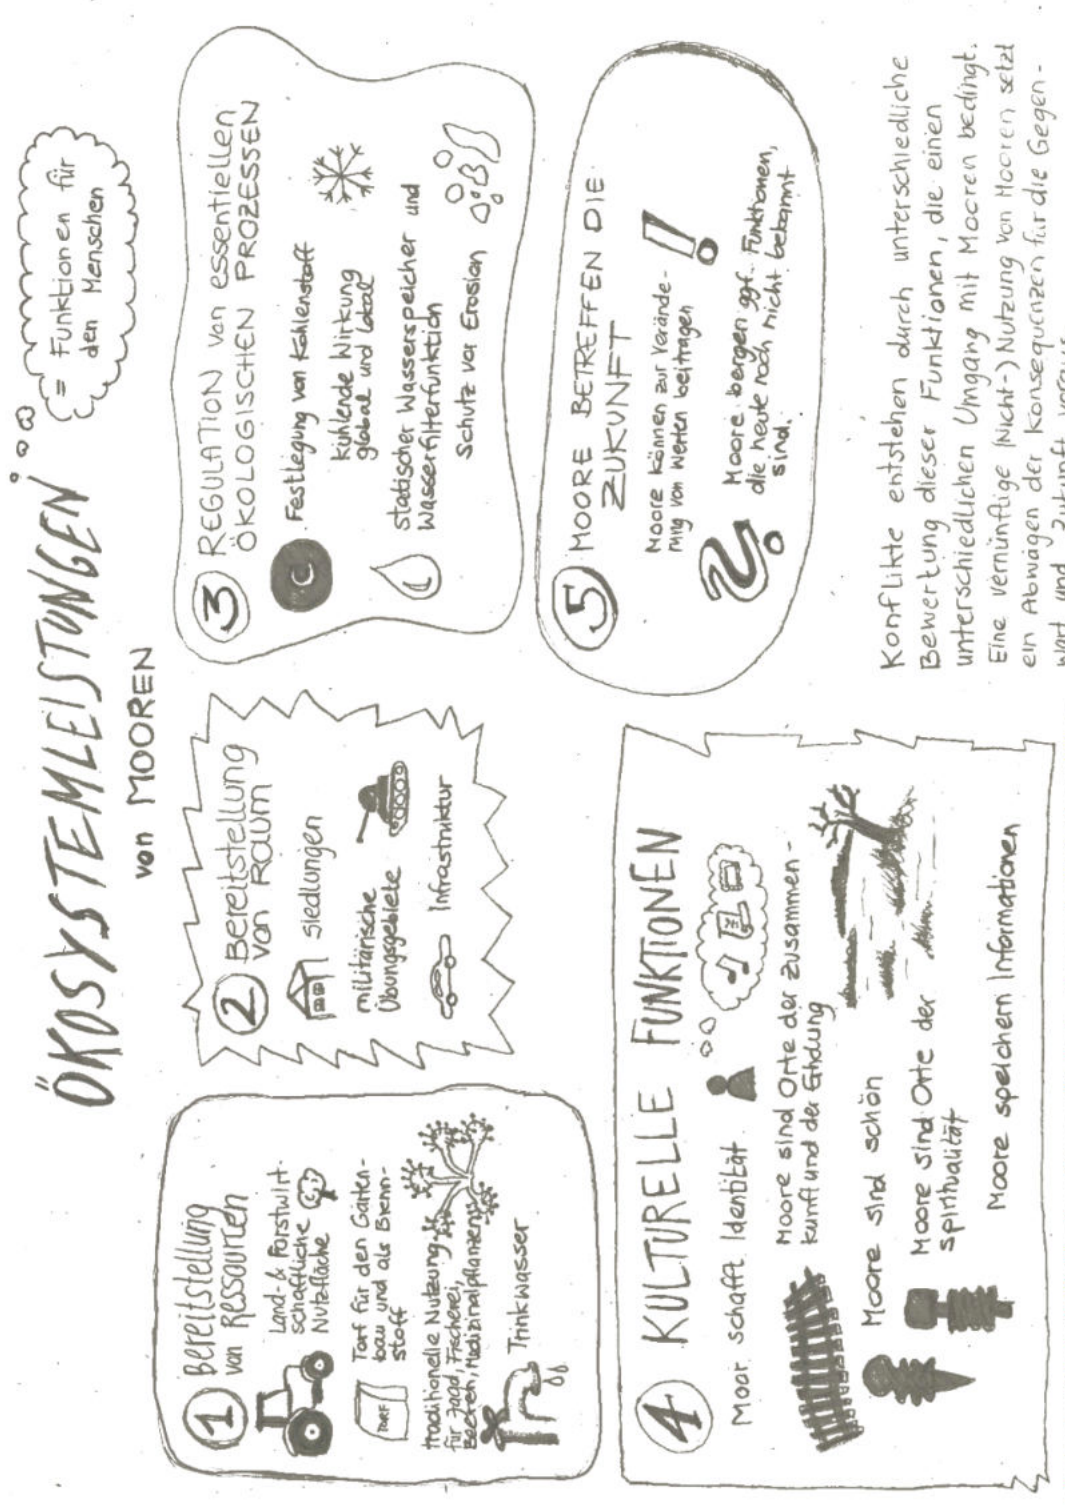 ÖKOSYSTEMLEISTUNGEN
von MOOREN
= Funktionen für
den Menschen
1 Bereitstellung
von Ressourcen
Land- & Forstwirt-
schaftliche
Nutzfläche
Torf für den Garten-
bau und als Brenn-
stoff
TORF
traditionelle Nutzung
für Jagd, Fischerei,
Beeren, Medizinalpflanzen
Trinkwasser
2 Bereitstellung
von Raum
Siedlungen
militärische
Übungsgebiete
Infrastruktur
3 REGULATION von essentiellen
ÖKOLOGISCHEN PROZESSEN
C
Festlegung von Kohlenstoff
kühlende Wirkung
global und lokal
statischer Wasserspeicher und
Wasserfilterfunktion
Schutz vor Erosion
4 KULTURELLE FUNKTIONEN
Moor schafft Identität
Moore sind Orte der Zusammen-
kunft und der Erholung
Moore sind schön
Moore sind Orte der
Spiritualität
Moore speichern Informationen
5 MOORE BETREFFEN DIE
ZUKUNFT
Moore können zur Verände-
rung von Werten beitragen
!
?
Moore bergen ggf. Funktionen,
die heute noch nicht bekannt
sind.
Konflikte entstehen durch unterschiedliche
Bewertung dieser Funktionen, die einen
unterschiedlichen Umgang mit Mooren bedingt.
Eine vernünftige (Nicht-) Nutzung von Mooren setzt
ein Abwägen der Konsequenzen für die Gegen-
wart und Zukunft voraus.